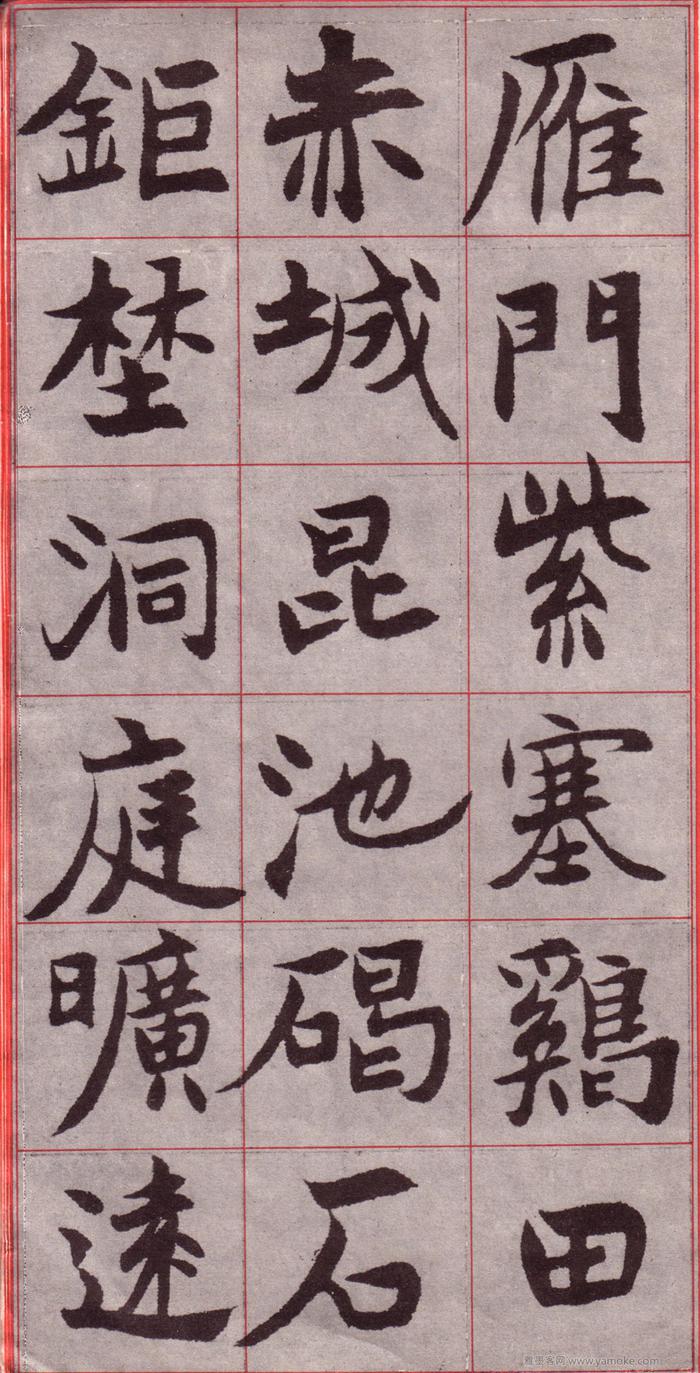 雁門紫塞鷄田
赤城昆池碣石
鉅埜洞庭曠遠
雅墨客网 www.yamoke.com